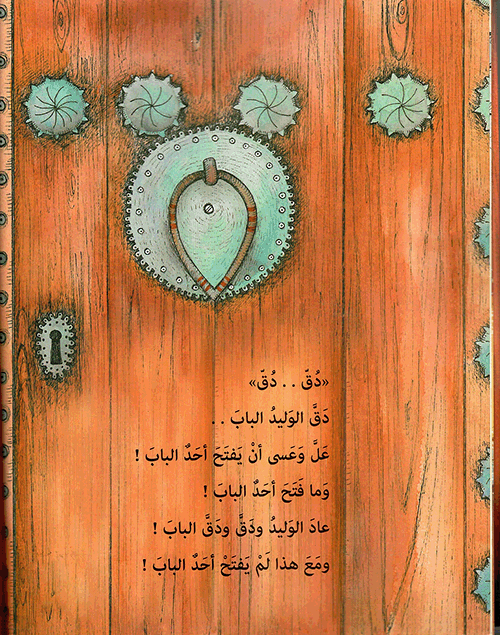 «دُقّ . . دُقّ»
دَقَّ الوَليدُ البابَ . .
عَلَّ وَعَسى أنْ يَفتَحَ أحَدٌ البابَ !
وَما فَتَحَ أحَدٌ البابَ !
عادَ الوَليدُ ودَقَّ ودَقَّ البابَ !
ومَعَ هذا لَمْ يَفتَحْ أحَدٌ البابَ !
٨